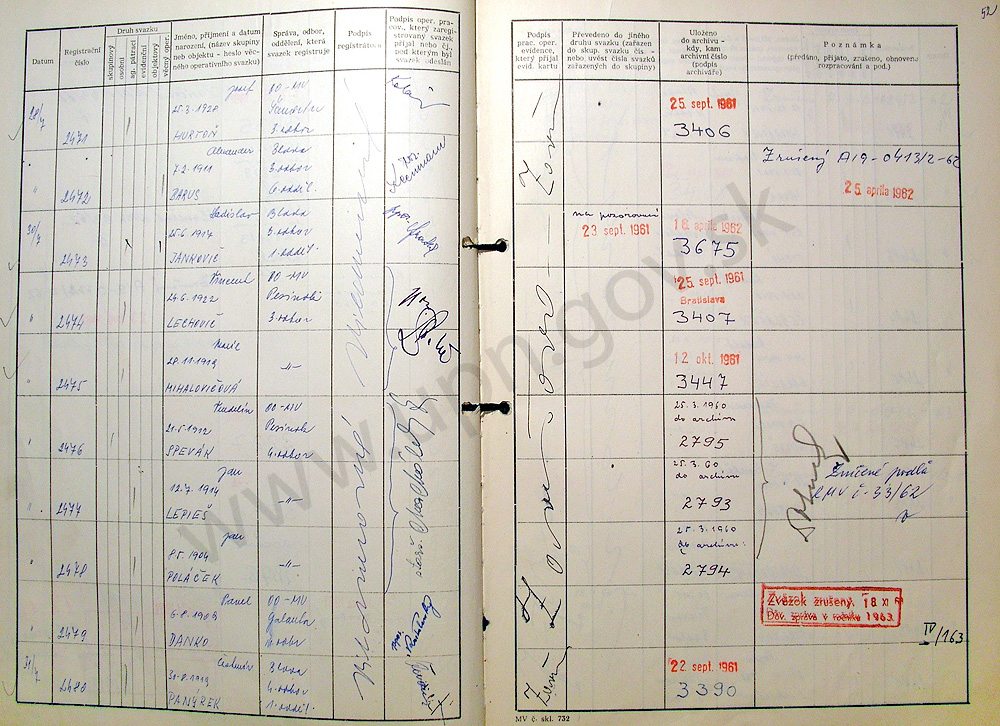 52
Datum
Registrační číslo
Druh svazku
skupinový
osobní
sg. pátrací
evidenční
objektový
věcný oper.
Jméno, příjmení a datum narození, (název skupiny neb objektu - heslo věcného operativního svazku)
Správa, odbor, oddělení, která svazek registruje
Podpis registrátora
Podpis oper. prac., který zaregistrovaný svazek přijal nebo čj., pod kterým byl svazek odeslán
Podpis prac. oper. evidence, který přijal evid. kartu
Převedeno do jiného druhu svazku (zařazen do skup. svazku čís. - nebo uvést čísla svazků zařazených do skupiny)
Uloženo do archivu - kdy, kam archivní číslo (podpis archiváře)
Poznámka
(předáno, přijato, zrušeno, obnoveno rozpracování a pod.)
28/7
2471
Jozef
25.3.1928
HURTOŇ
OO-MV
3. odbor
25. sept. 1961
3406
"
2472
Alexander
7.2.1911
BARUS
Blava
3. odbor
6. oddil.
Zrušený A19-0413/2-62
25 apríla 1962
30/7
2473
Ladislav
25.6.1917
JANKOVIČ
Blava
3. odbor
1. oddil.
na pozorovaní
23 sept. 1961
18 apríla 1962
3675
"
2474
Vincent
29.6.1922
LECHOVIČ
OO-MV
Pezinok
3. odbor
25. sept. 1961
Bratislava
3407
"
2475
28.11.1919
MIHALOVIČOVÁ
-"-
12 okt. 1961
3447
"
2476
Vendelín
21.5.1912
SPEVÁK
OO-MV
Pezinok
4. odbor
25.3.1960
do archívu
2795
"
2477
Jan
12.7.1914
LEPIEŠ
-"-
25.3.60
do archívu
2793
Zničené podľa
RMV č. 33/62
"
2478
Jan
8.5.1904
POLÁČEK
-"-
25.3.1960
do archívu
2794
"
2479
Pavel
6.8.1909
DANKO
OO-MV
Galanta
odbor
Zväzok zrušený. 18 XI
Dáv. zpráva v ročníku 1963
IV/163
31/7
2480
30.8.1919
PANÝREK
Blava
4. odbor
1. oddil.
22 sept. 1961
3390
MV č. skl. 732
www.upn.gov.sk